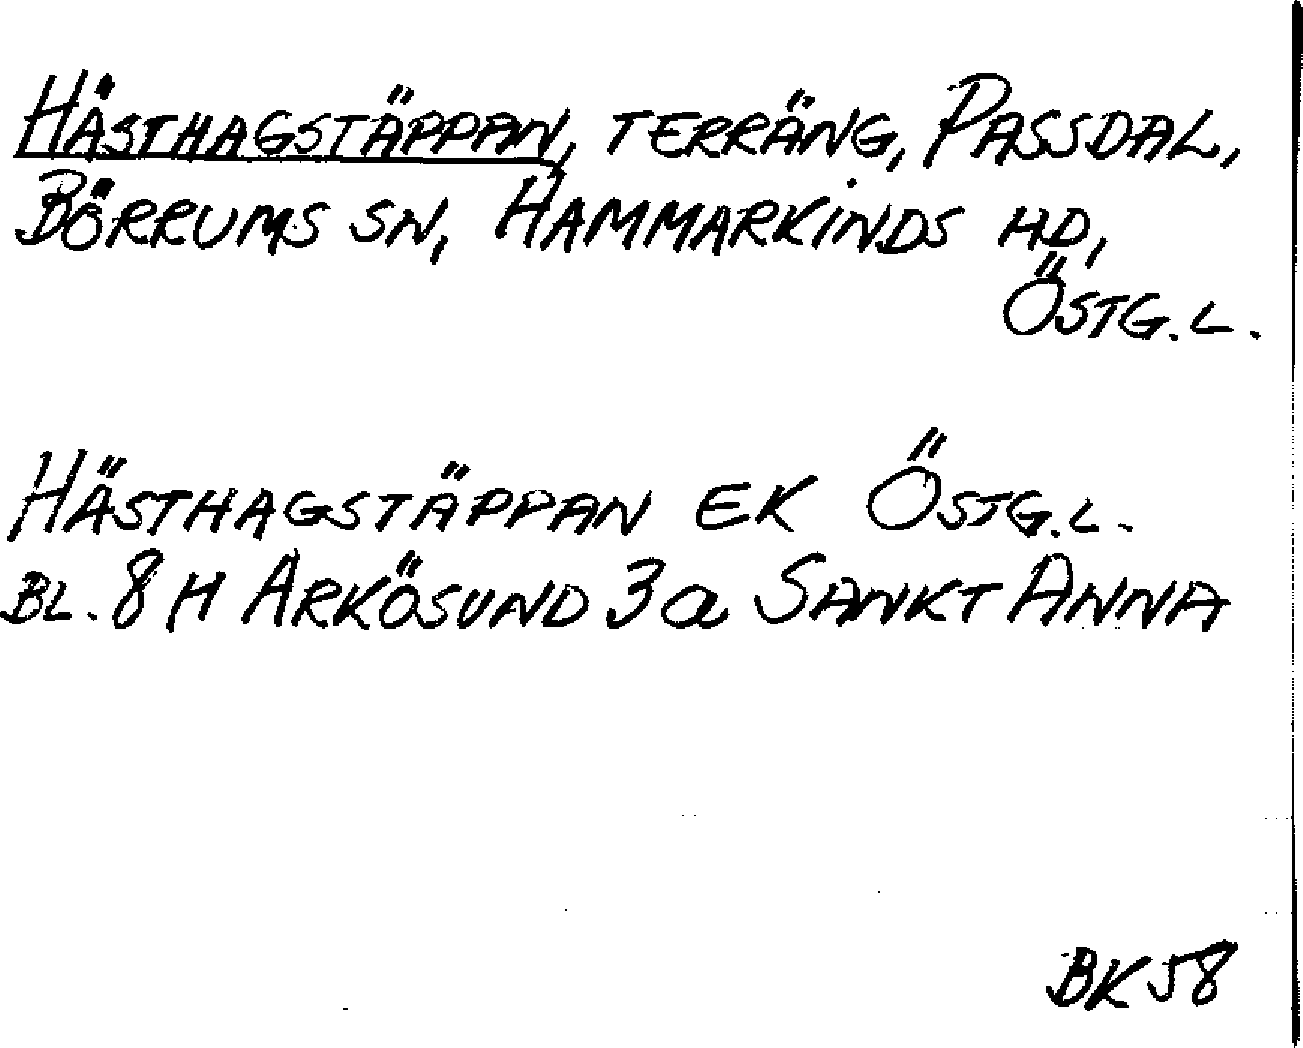 HÄSTHAGSTÄPPAN, TERRÄNG, PASSDAL,
BÖRRUMS SN, HAMMARKINDS HD,
ÖSTG.L.
HÄSTHAGSTÄPPAN EK ÖSTG.L.
BL. 8 H ARKÖSUND 3a SANKT ANNA
BK 58